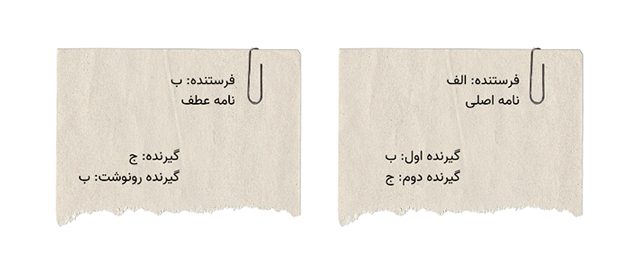 فرستنده: الف
نامه اصلی
گیرنده اول: ب
گیرنده دوم: ج
فرستنده: ب
نامه عطف
گیرنده: ج
گیرنده رونوشت: ب